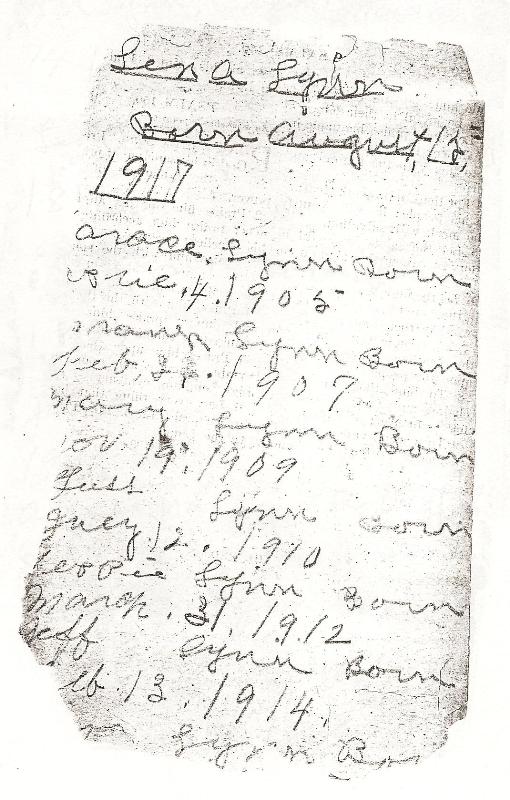 Lena Lynn
Born August, 13,
1917
Grace. Lynn Born
4. 1905
Lynn Born
Feb, 1907
Mary Lynn Born
Nov. 19. 1909
Lynn Born
12. 1910
Lynn Born
March. 1912
Jeff Lynn Born
Feb. 13. 1914.
Lynn